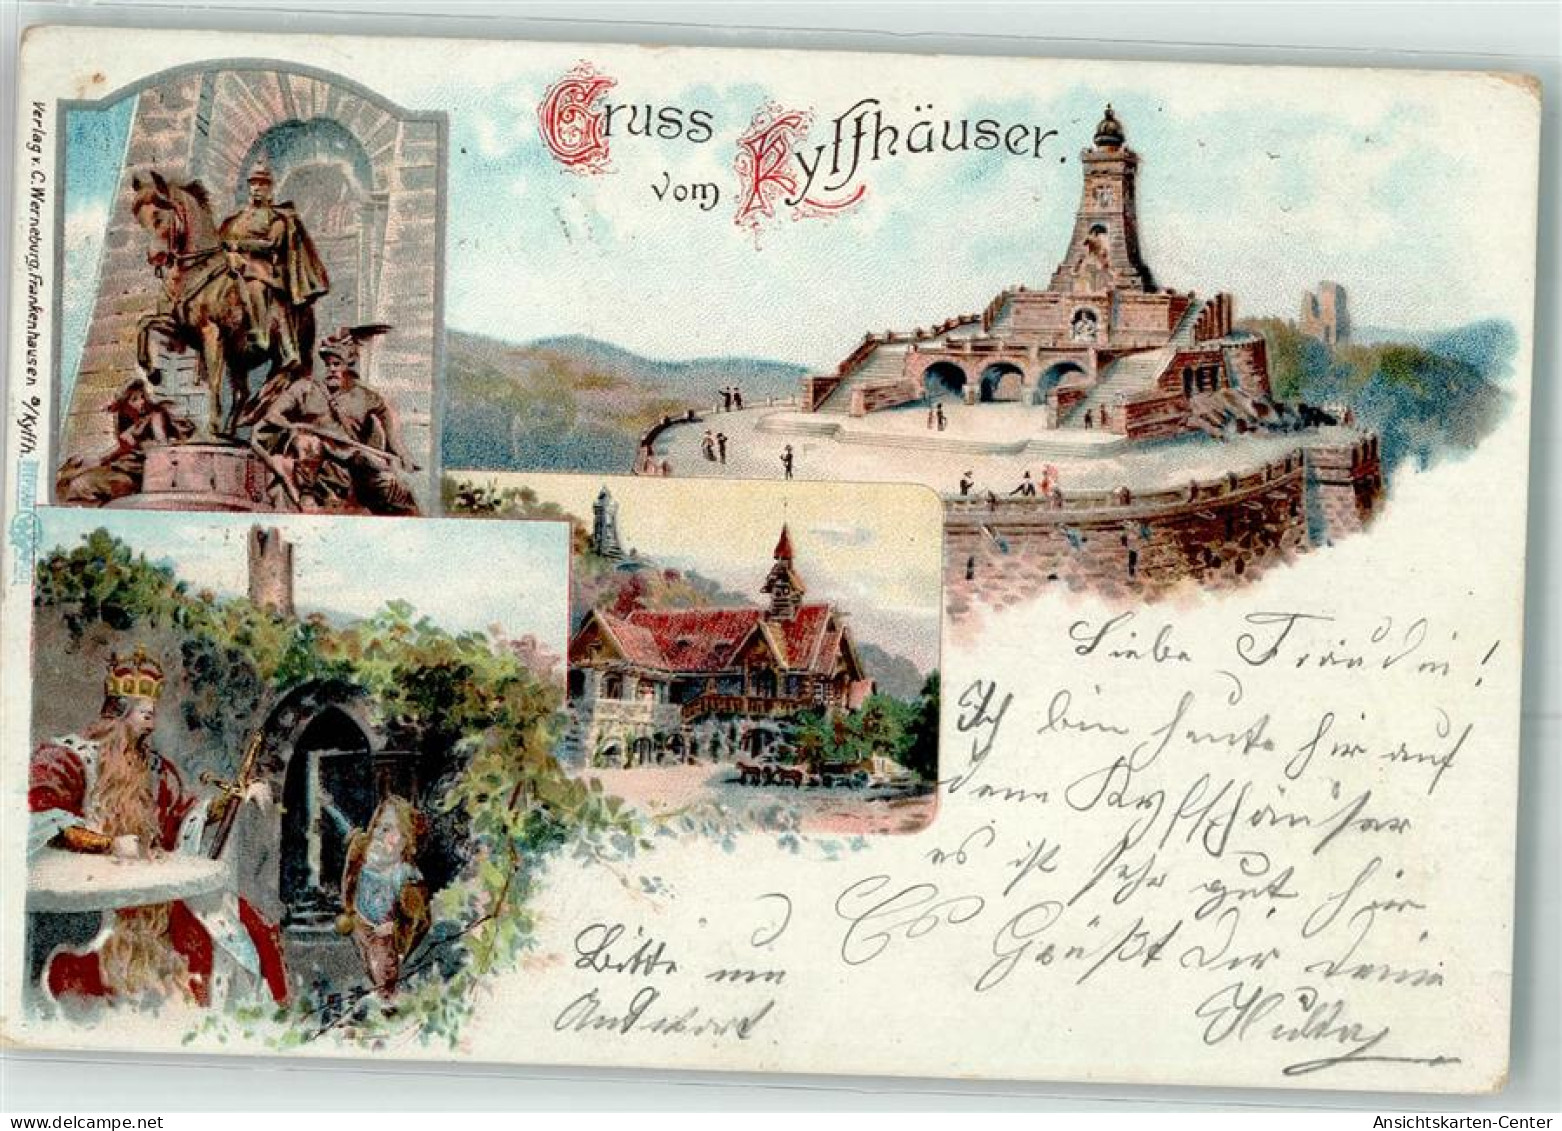 Gruss
vom Kyffhäuser.
Verlag v. C. Werneburg, Frankenhausen a/Kyffh.
Liebe Freundin!
Ich bin heute hir auf
dem Kyffhäuser
es ist sehr gut hier
Es Grüßt Dir deine
Hulda
Bitte um
Antwort
oldthing
Ansichtskarten-Center